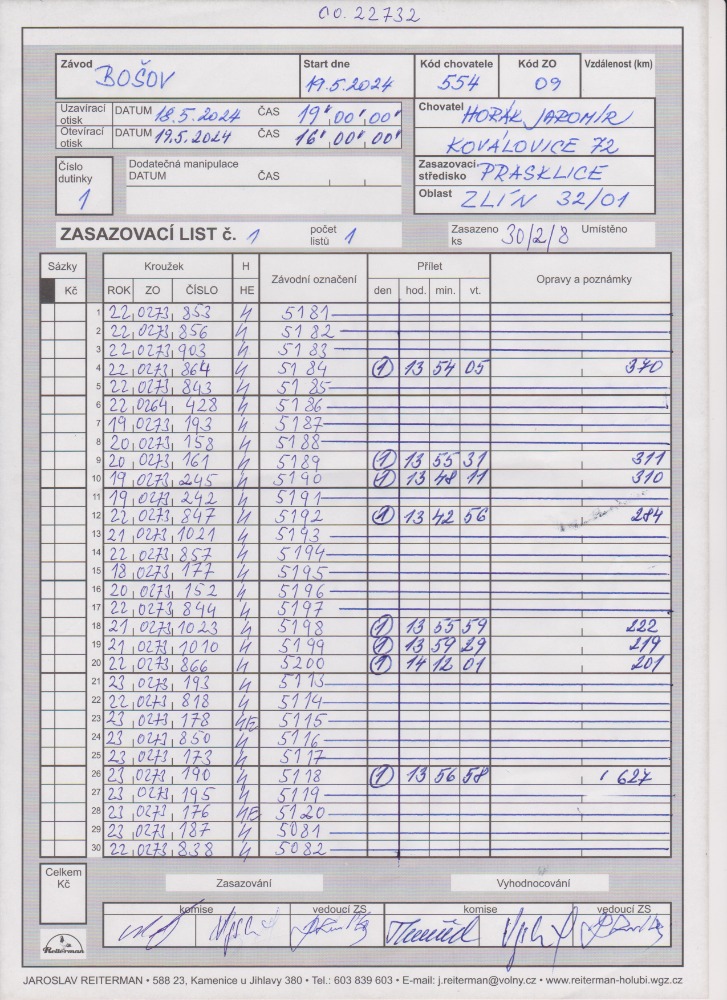 OO. 22732
Závod BOŠOV Start dne 19.5.2024 Kód chovatele 554 Kód ZO 09 Vzdálenost (km)
Uzavírací otisk DATUM 18.5.2024 ČAS 19 00 00
Otevírací otisk DATUM 19.5.2024 ČAS 16 00 00
Chovatel HORÁK JAROMÍR
KOVÁLOVICE 72
Číslo dutinky 1 Dodatečná manipulace DATUM ČAS
Zasazovací středisko PRASKLICE
Oblast ZLÍN 32/01
ZASAZOVACÍ LIST č. 1 počet listů 1 Zasazeno ks 30/2/8 Umístěno
Sázky Kroužek H Závodní označení Přílet Opravy a poznámky
Kč ROK ZO ČÍSLO HE den hod. min. vt.
1 22 0273 853 H 5181
2 22 0273 856 H 5182
3 22 0273 903 H 5183
4 22 0273 864 H 5184 1 13 54 05 370
5 22 0273 843 H 5185
6 22 0264 428 H 5186
7 19 0273 193 H 5187
8 20 0273 158 H 5188
9 20 0273 161 H 5189 1 13 55 31 311
10 19 0273 245 H 5190 1 13 48 11 310
11 19 0273 242 H 5191
12 22 0273 847 H 5192 1 13 42 56 284
13 21 0273 1021 H 5193
14 22 0273 857 H 5194
15 18 0273 177 H 5195
16 20 0273 152 H 5196
17 22 0273 844 H 5197
18 21 0273 1023 H 5198 1 13 55 59 222
19 21 0273 1010 H 5199 1 13 59 29 219
20 22 0273 866 H 5200 1 14 12 01 201
21 23 0273 193 H 5113
22 22 0273 818 H 5114
23 23 0273 178 HE 5115
24 23 0273 850 H 5116
25 23 0273 173 H 5117
26 23 0273 190 H 5118 1 13 56 58 627
27 23 0273 195 H 5119
28 23 0273 176 HE 5120
29 23 0273 187 H 5081
30 22 0273 838 H 5082
Celkem Kč Zasazování Vyhodnocování
komise vedoucí ZS komise vedoucí ZS
Reiterman
JAROSLAV REITERMAN • 588 23, Kamenice u Jihlavy 380 • Tel.: 603 839 603 • E-mail: j.reiterman@volny.cz • www.reiterman-holubi.wgz.cz